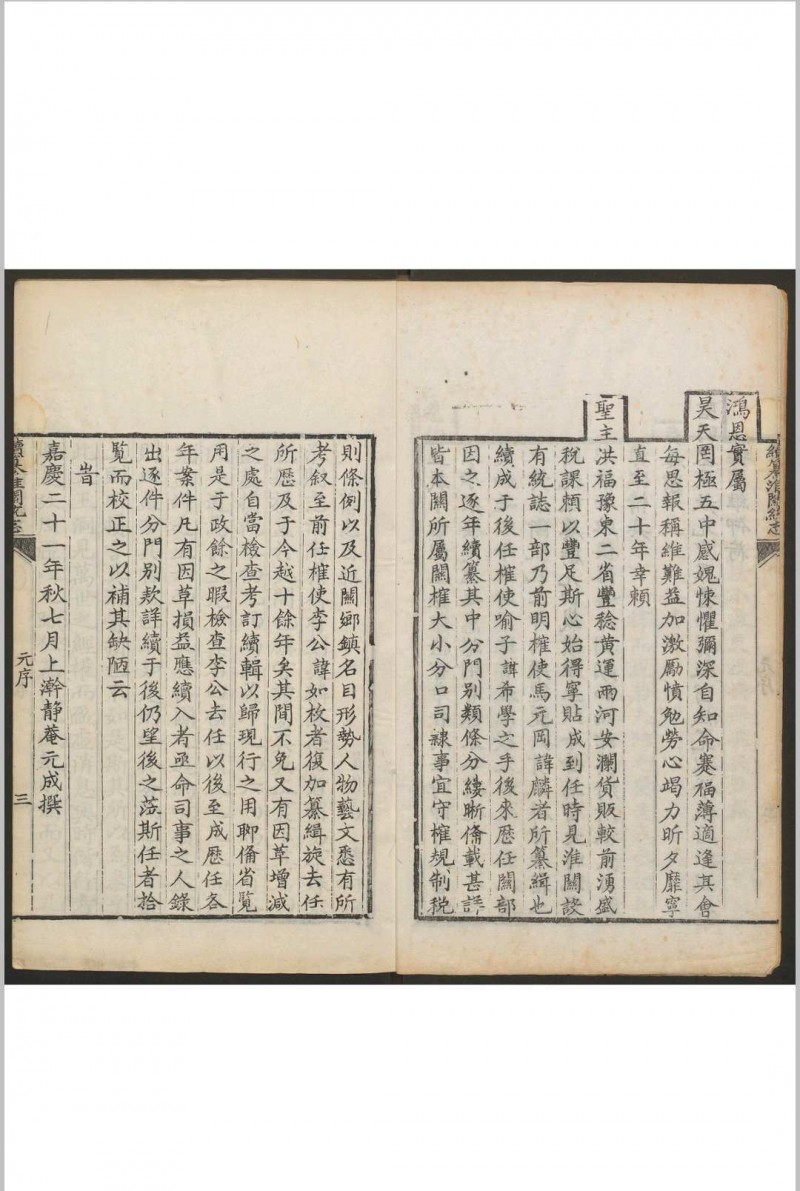 續纂淮關統志
鴻恩實屬
昊天罔極五中感媿悚懼彌深自知命蹇福薄適逢其會
每思報稱維難益加激勵憤勉勞心竭力昕夕靡寧
直至二十年幸賴
聖主洪福豫東二省豐稔黃運兩河安瀾貨販較前湧盛
稅課賴以豐足斯心始得寧貼成到任時見淮關設
有統誌一部乃前明榷使馬元岡諱麟者所纂緝也
續成于後任榷使喻子諱希學之手後來歷任關部
因之逐年續纂其中分門別類條分縷晰俻載甚詳
皆本關所屬關榷大小分口司隸事宜守榷規制稅
則條例以及近關鄉鎮名目形勢人物藝文悉有所
考叙至前任榷使李公諱如枚者復加纂緝旋去任
所歷及于今越十餘年矣其間不免又有因革增減
之處自當檢查考訂續輯以歸現行之用聊俻省覽
用是于政餘之暇檢查李公去任以後至成歷任各
年案件凡有因革損益應續入者亟命司事之人錄
出逐件分門別欵詳續于後仍望後之蒞斯任者拾
覽而校正之以補其缺陋云
旹
嘉慶二十一年秋七月上澣靜菴元成撰
元序
三